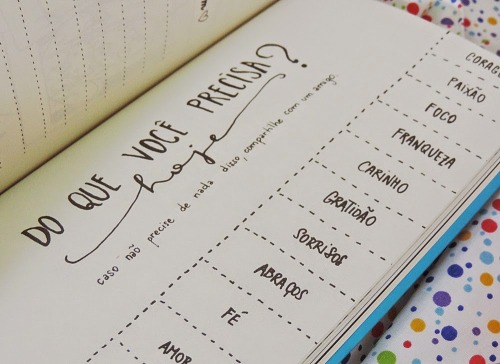 DO QUE VOCÊ PRECISA?
hoje
caso não precise de nada disso, compartilhe com um amigo.
CORAG
PAIXÃO
FOCO
FRANQUEZA
CARINHO
GRATIDÃO
SORRISOS
ABRAÇOS
FÉ
AMOR